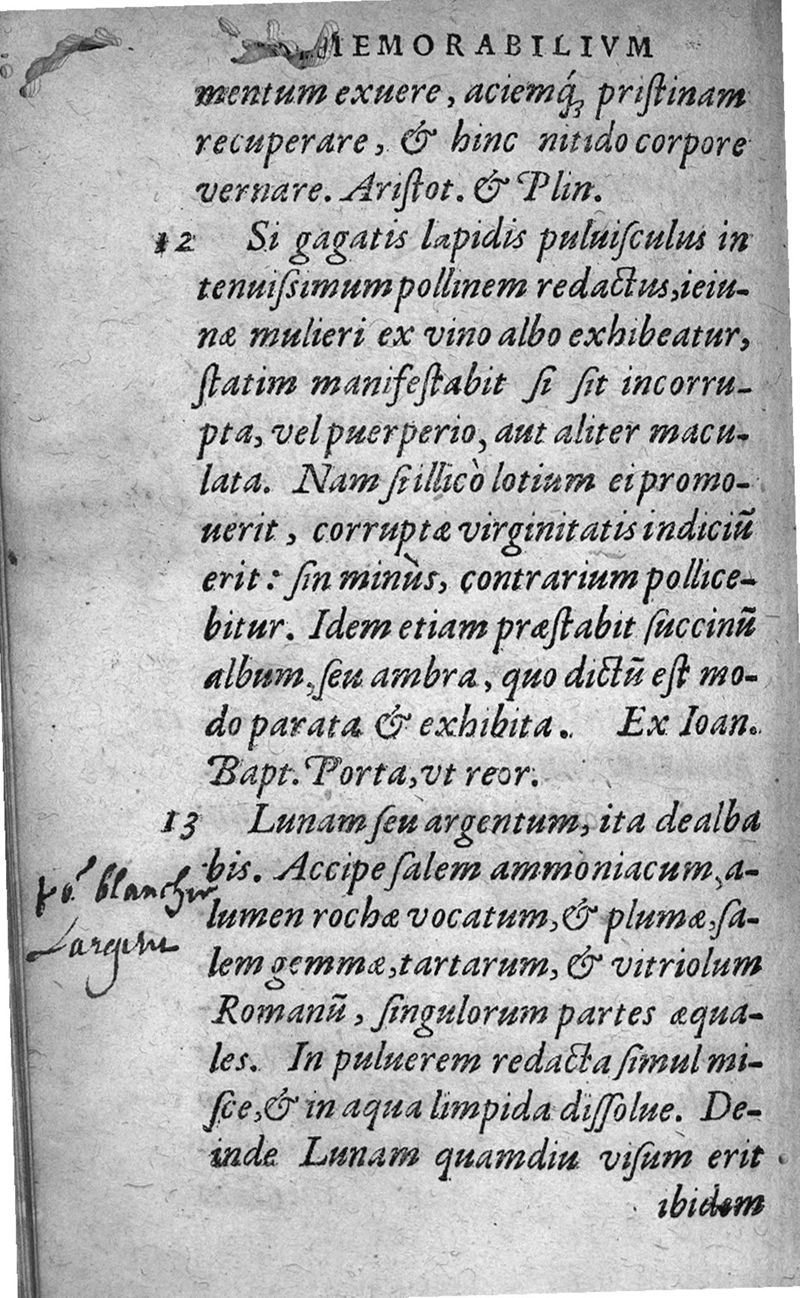 MEMORABILIVM
mentum exuere, aciemq́; priſtinam
recuperare, & hinc nitido corpore
vernare. Ariſtot. & Plin.
12 Si gagatis lapidis puluiſculus in
tenuiſsimum pollinem redactus, ieiu-
næ mulieri ex vino albo exhibeatur,
ſtatim manifeſtabit ſi ſit incorru-
pta, vel puerperio, aut aliter macu-
lata. Nam ſi illicò lotium ei promo-
uerit, corruptæ virginitatis indiciū
erit: ſin minùs, contrarium pollice-
bitur. Idem etiam præſtabit ſuccinū
album, ſeu ambra, quo dictū eſt mo-
do parata & exhibita. Ex Ioan.
Bapt. Porta, vt reor.
13 Lunam ſeu argentum, ita dealba
bis. Accipe ſalem ammoniacum, a-
po.r blanchir
lumen rochæ vocatum, & plumæ, ſa-
Largent
lem gemmæ, tartarum, & vitriolum
Romanū, ſingulorum partes æqua-
les. In puluerem redacta ſimul mi-
ſce, & in aqua limpida diſſolue. De-
inde Lunam quamdiu viſum erit
ibidem